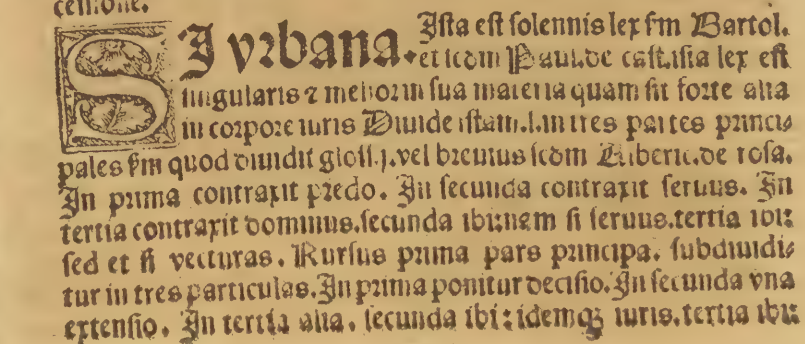 cessione.
SI vrbana. Ista est solennis lex fm Bartol.
et scdm Paul. de cast. ista lex est
singularis ⁊ melior in sua materia quam sit forte alia
in corpore iuris Diuide istam .l. in tres partes princi⸗
pales fm quod diuidit glos. j. vel breuius scdm Alberic. de rosa.
In prima contraxit predo. In secunda contraxit seruus. In
tertia contraxit dominus. secunda ibi: nam si seruus. tertia ibi:
sed et si vecturas. Rursus prima pars principa. subdiuidi⸗
tur in tres particulas. In prima ponitur decisio. In secunda vna
extensio. In tertia alia. secunda ibi: idemqꝫ iuris. tertia ibi: